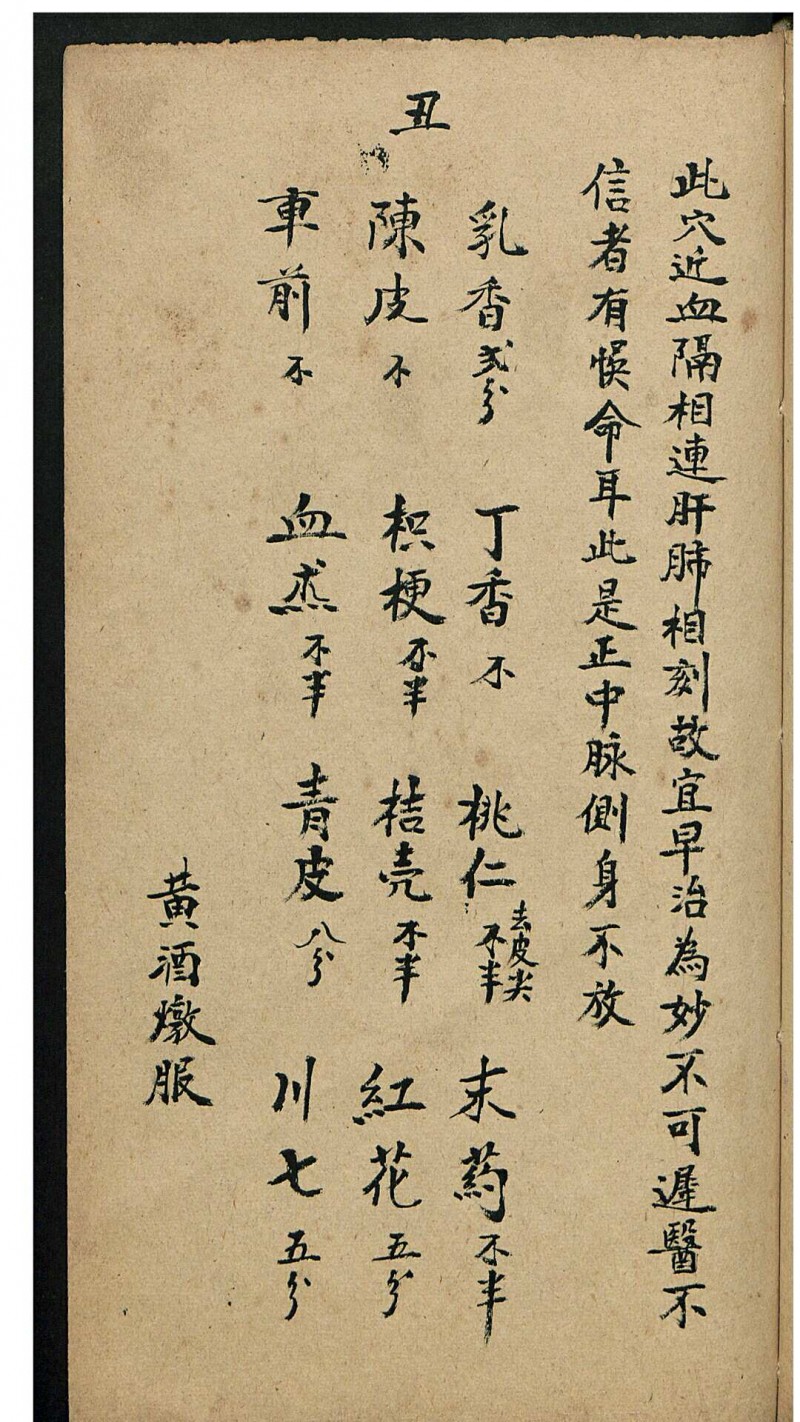 此穴近血隔相連肝肺相刻故宜早治為妙不可遲醫不
信者有悞命耳此是正中脉側身不放
丑
乳香弍分 丁香不 桃仁去皮尖不半 末药不半
陳皮不 枳梗不半 桔壳不半 紅花五分
車前不 血炁不半 青皮八分 川七五分
黄酒燉服